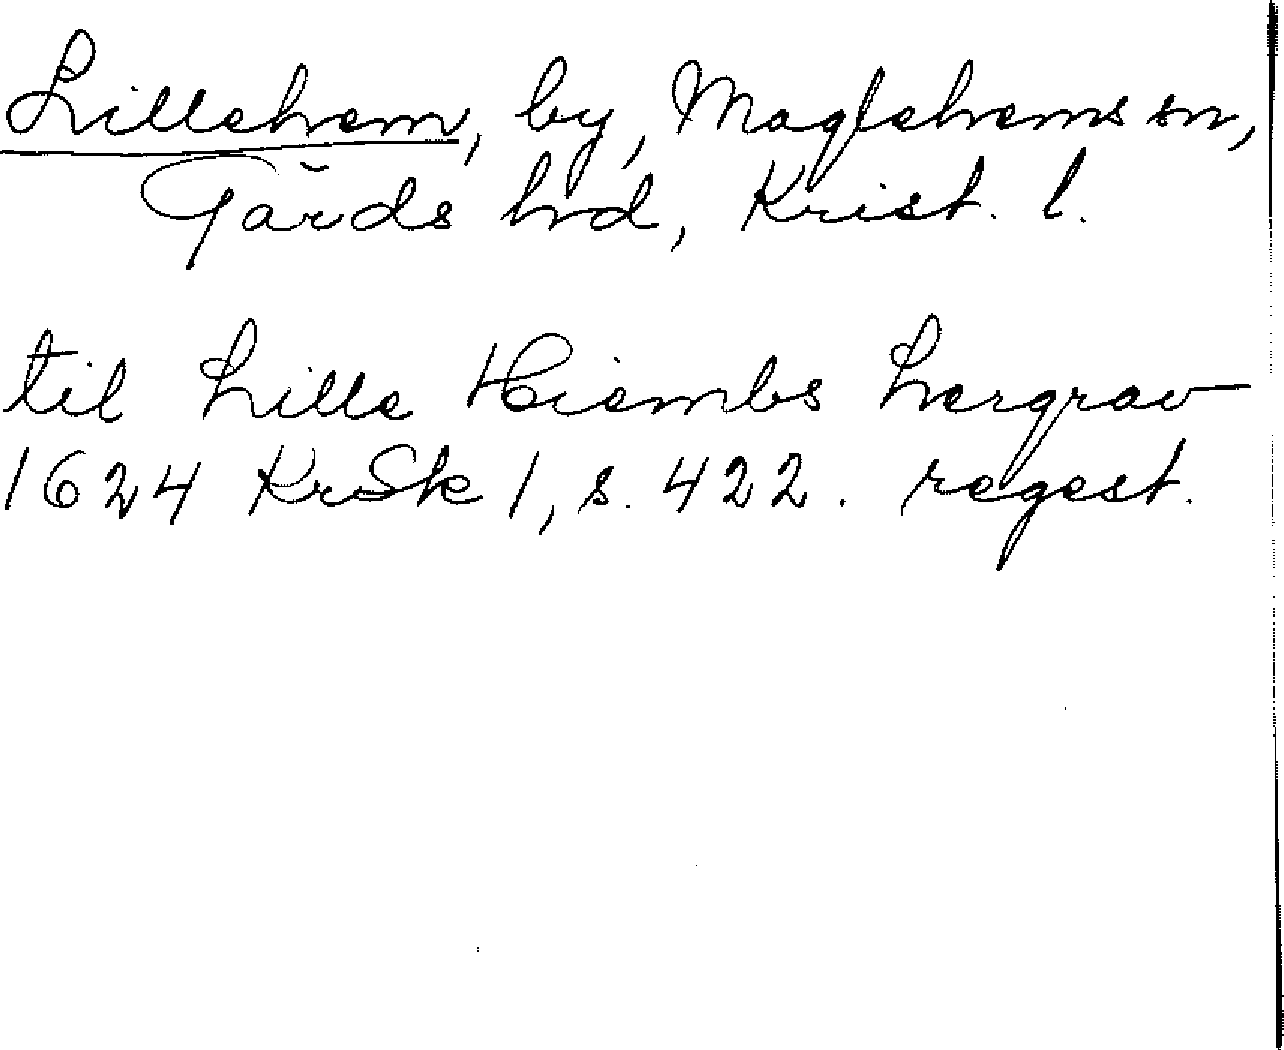 Lillehem, by, Maglehems sn,
Gärds hrd, Krist. l.
til Lille Hiembs Lergrav
1624 KrSk 1, s. 422. regest.